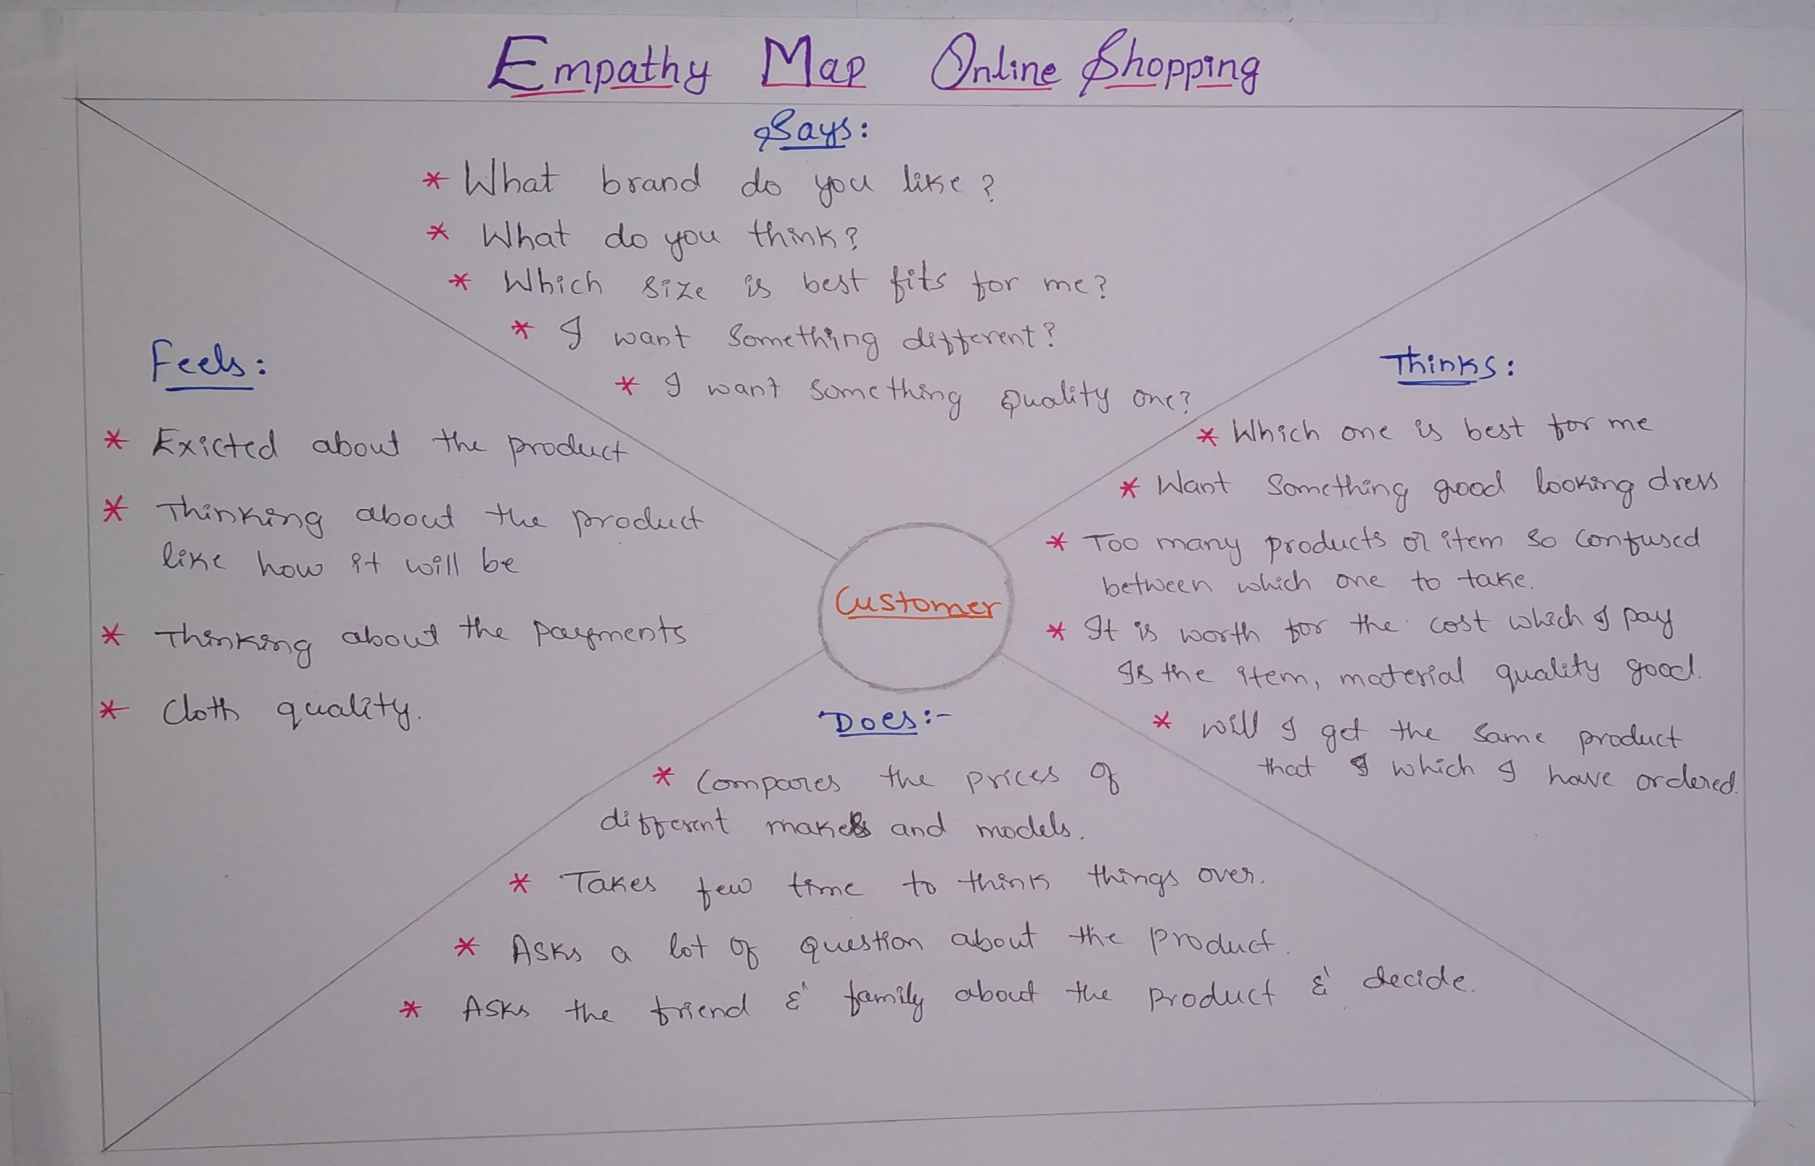 Empathy Map Online Shopping
Says:
* What brand do you like?
* What do you think?
* Which size is best fits for me?
* I want something different?
* I want something quality one?
Feels:
* Exicted about the product
* Thinking about the product
like how it will be
* Thinking about the payments
* Cloth quality.
Customer
Thinks:
* Which one is best for me
* Want something good looking dress
* Too many products or item so confused
between which one to take.
* It is worth for the cost which I pay
Is the item, material quality good.
* will I get the same product
that I which I have ordered.
Does:-
* Compares the prices of
different makes and models.
* Takes few time to think things over.
* Asks a lot of question about the product.
* Asks the friend & family about the product & decide.